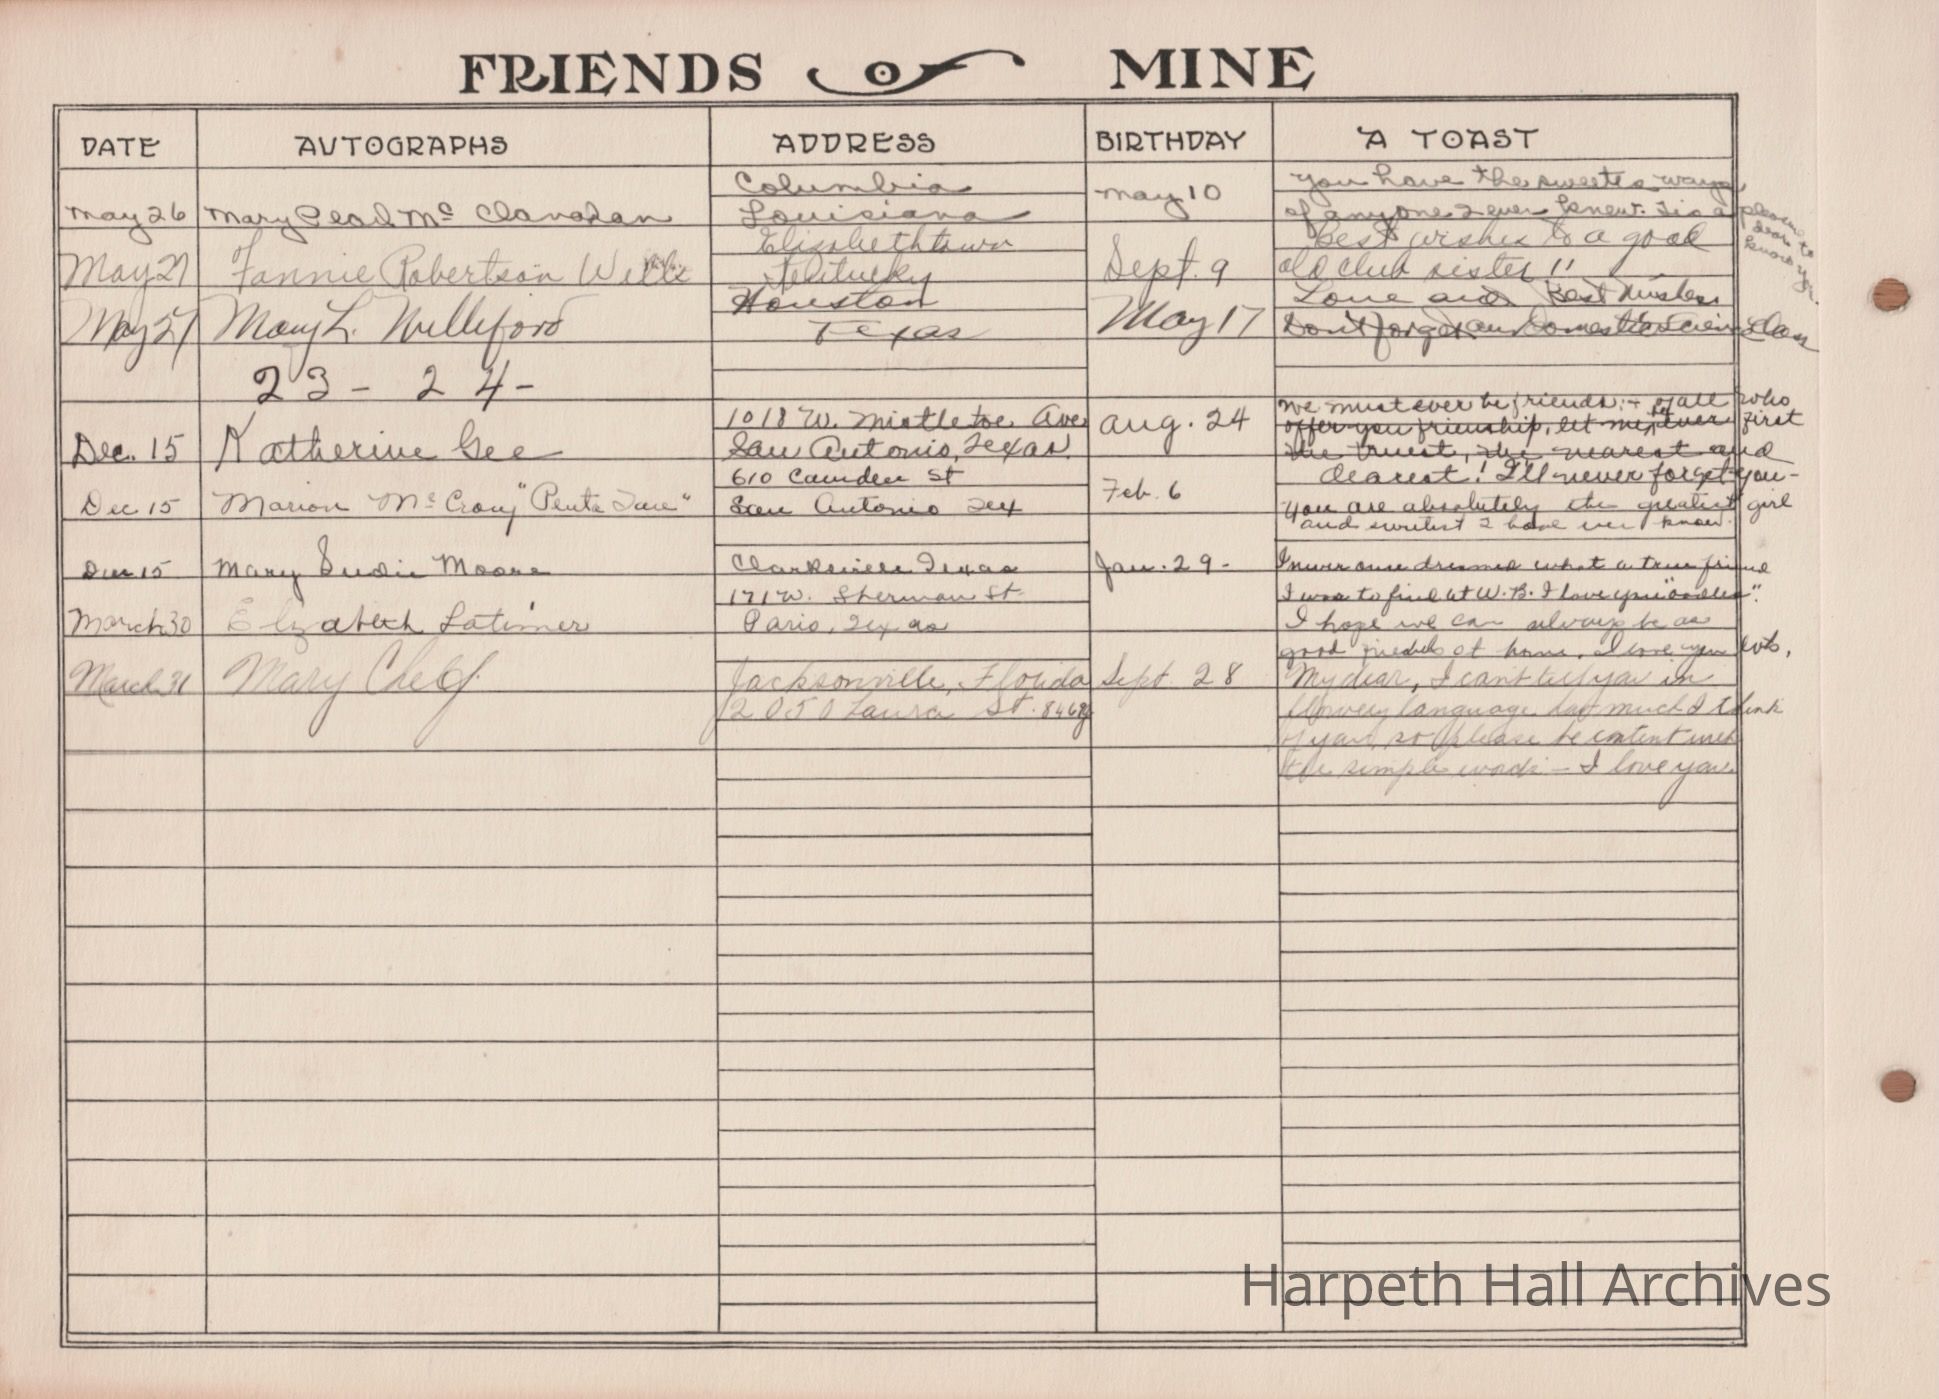 FRIENDS OF MINE
DATE AUTOGRAPHS ADDRESS BIRTHDAY A TOAST
May 26 Mary Pearl Mc Clanahan Columbia Louisiana May 10
You have the sweetest ways
of anyone I ever knew. 'Tis a
pleasure to
dear
know you
May 27 Fannie Robertson Elizabethtown Kentucky Sept. 9
Best wishes to a good
old club sister!!
May 27 Mary L. Williford Houston Texas May 17
Love and Best Wishes
Don't forget our Domestic Science Class
23 - 24 -
Dec. 15 Katherine Gee 1018 W. Mistletoe Ave San Antonio, Texas. Aug. 24
We must ever be friends: - of all who
offer you frienship, let me be ever first
the truest, the nearest and
dearest! I'll never forget you -
Dec 15 Marion McCrory 610 Camden St San Antonio Tex Feb. 6
You are absolutely the greatest girl
and sweetest I have ever known.
Dec 15 Mary Sudie Moore Clarksville Texas Jan. 29 -
I never once dreamed what a true friend
I was to find at W. B. I love you "oodles".
March 30 Elizabeth Latimer 171 W. Sherman St. Paris, Texas
I hope we can always be as
good friends at home. I love you lots.
March 31 Mary Jacksonville, Florida 2050 Laura St. Sept. 28
My dear, I can't tell you in
flowery language how much I think
of you, so please be content with
the simple words - I love you.
Harpeth Hall Archives